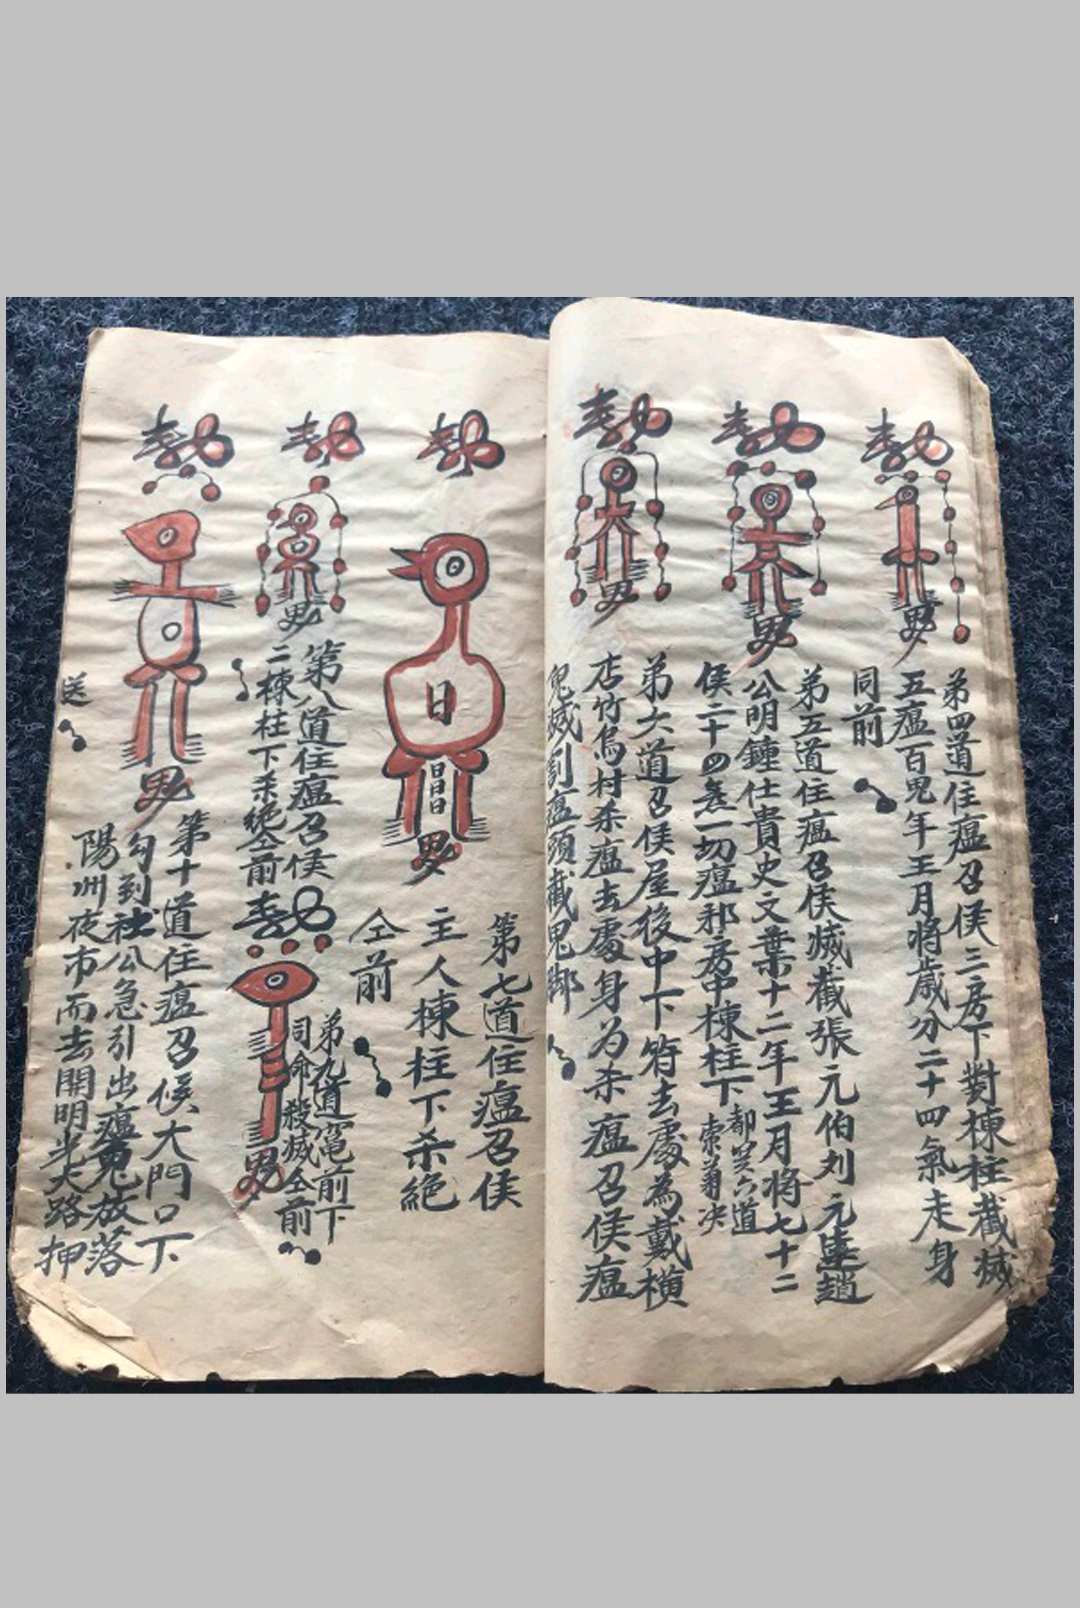 弟四道住瘟召侯三房下對棟柱截滅
五瘟百鬼年王月將歲分二十四氣走身
同前
弟五道住瘟召侯滅截張元伯刘元達趙
公明鍾仕貴史文業十二年王月將七十二
侯二十四氣一切瘟邪房中棟柱下
弟六道召侯屋後中下符去處為戴橫
店竹鳥村杀瘟去處身为杀瘟召侯瘟
鬼滅割瘟頭截鬼脚
第七道住瘟召侯
主人棟柱下杀絕
仝前
第八道住瘟召侯
二棟柱下杀絕仝前
弟九道竈前下
司命殺滅仝前
第十道住瘟召候大門口下
勾到社公急引出瘟鬼放落
陽洲夜市而去開明光大路押
送